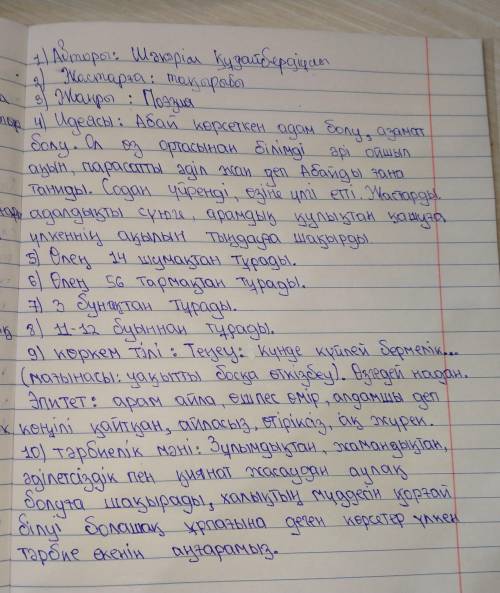 1) Авторы: Шәкәрім Құдайбердіұлы
2) Жастарға: тақырыбы
3) Жанры: Поэзия
4) Идеясы: Абай көрсеткен адам болу, азамат
болу. Ол өз ортасынан білімді әрі ойшыл
ақын, парасатты әділ жан деп Абайды ғана
таниды. Содан үйренді, өзіне үлгі етті. Жастарды
адалдықты сүюге, арамдық қулықтан қашуға
үлкеннің ақылын тыңдауға шақырды
5) Өлең 14 шумақтан тұрады.
6) Өлең 56 тармақтан тұрады.
7) 3 бунақтан тұрады.
8) 11-12 буыннан тұрады.
9) көркем тілі: Теңеу: күнде күйлей бермелік...
(мағынасы: уақытты босқа өткізбеу). Өгіздей надан.
Эпитет: арам айла, өшпес өмір, алдамшы деп
көңілі қайтқан, айласыз, өтіріксіз, ақ жүрек.
10) тәрбиелік мәні: Зұлымдықтан, жамандықтан,
әділетсіздік пен қиянат жасаудан аулақ
болуға шақырады, халықтың мүддесін қорғай
білуі болашақ ұрпағына деген көрсетер үлкен
тәрбие екенін аңғарамыз.